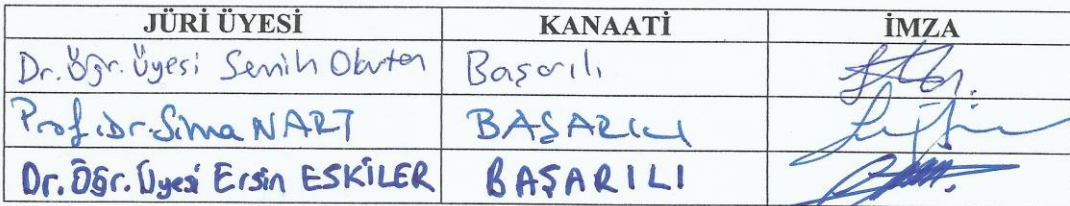 JÜRİ ÜYESİ KANAATİ İMZA
Dr. Öğr. Üyesi Semih Okutan Başarılı
Prof. Dr. Sima NART BAŞARILI
Dr. Öğr. Üyesi Ersin ESKİLER BAŞARILI